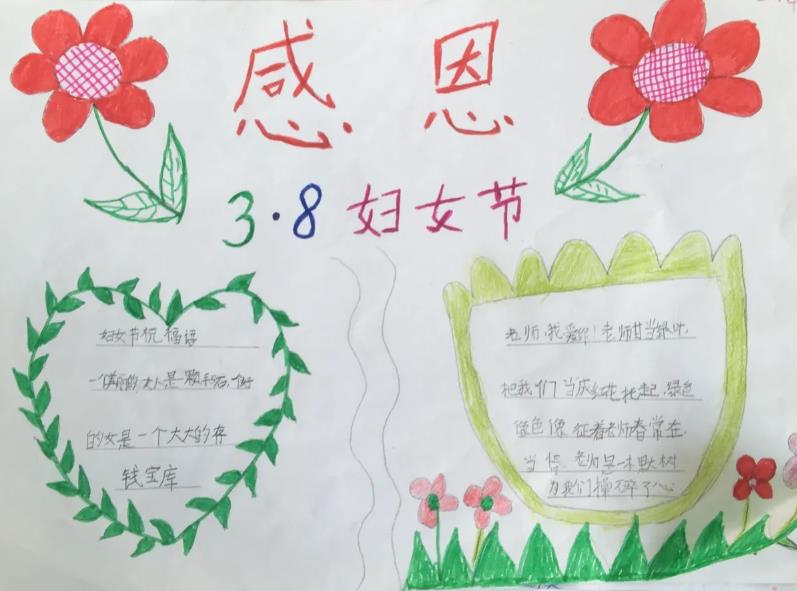 感恩
3·8妇女节
妇女节祝福语
一个美丽的女人是一颗钻石,一个好
的女是一个大大的存
钱宝库
老师,我爱你!老师甘当绿叶,
把我们当庆红花托起,绿色
像征着老师春常在,
当 老师是一木默树
为我们操碎了心